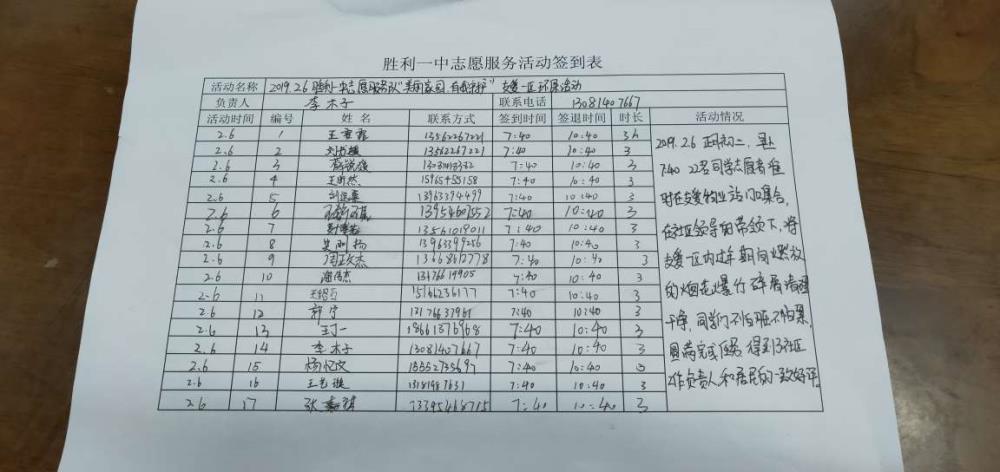 胜利一中志愿服务活动签到表
活动名称 2019.2.6 胜利一中志愿服务队"美丽家园,自我守护" 支援一区环保活动
负责人 李木子 联系电话 13081407667
活动时间 编号 姓名 联系方式 签到时间 签退时间 时长 活动情况
2.6 1 13562267221 7:40 10:40 3h
2.6 2 13562267221 7:40 10:40 3
2.6 3 7:40 10:40 3
2.6 4 15965455158 7:40 10:40 3
2.6 5 13963394499 7:40 10:40 3
2.6 6 7:40 10:40 3
2.6 7 13561019011 7:40 10:40 3
2.6 8 13963399256 7:40 10:40 3
2.6 9 周政杰 13668612778 7:40 10:40 3
2.6 10 13176619905 7:40 10:40 3
2.6 11 15166236177 7:40 10:40 3
2.6 12 郭宁 7:40 10:40 3
2.6 13 王丁一 18661376968 7:40 10:40 3
2.6 14 李木子 13081407667 7:40 10:40 3
2.6 15 杨忆文 15552735697 7:40 10:40 3
2.6 16 王艺璇 13181987631 7:40 10:40 3
2.6 17 13395468715 7:40 10:40 3
2019.2.6 正月初二,早上
7:40 22名同学志愿者准
时在支援物业站门口集合,
在社区领导的带领下,将
支援一区内过年期间燃放
的烟花爆竹碎屑清理
干净,同学们不怕脏不怕累,
圆满完成任务 得到了社区
工作负责人和居民的一致好评